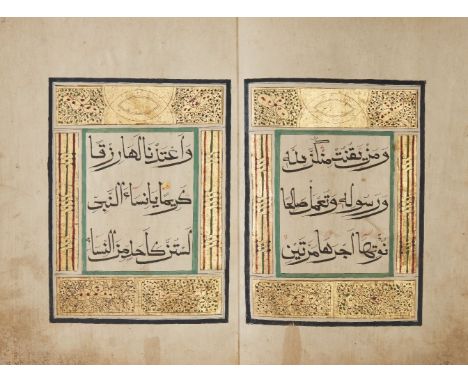 ومن يقنت منكن لله
ورسوله وتعمل صالحا
نوتها اجرها مرتين
واعتدنا لها رزقا
كريما يانساء النبي
لستن كاحد من النساء